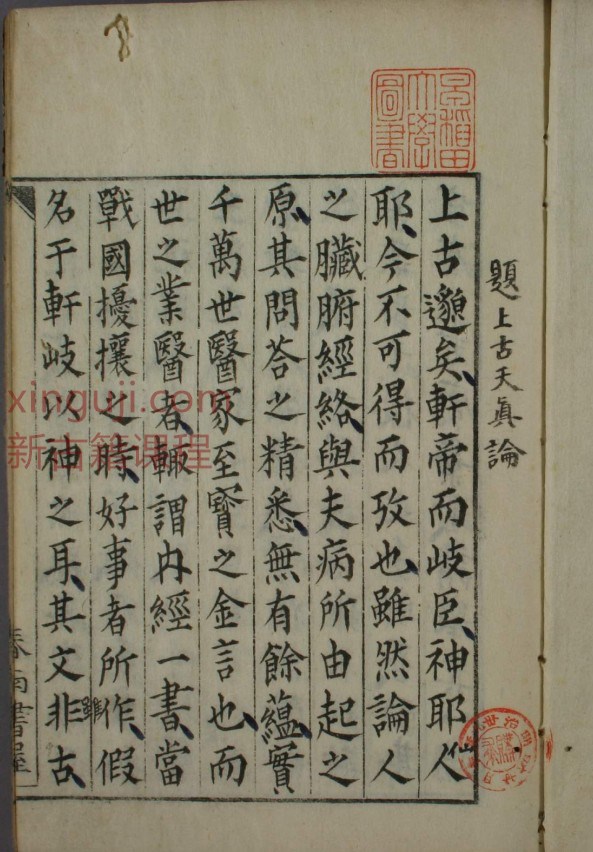 早稲田
大學
圖書
題上古天眞論
上古邈矣軒帝而岐臣神耶人
耶今不可得而攷也雖然論人
之臟腑經絡與夫病所由起之
原其問荅之精悉無有餘蘊實
千萬世醫家至寶之金言也而
世之業醫者輙謂內經一書當
戰國擾攘之時好事者所作假
名于軒岐以神之耳其文非古
春雨書屋
xinguji.com
新古籍课程